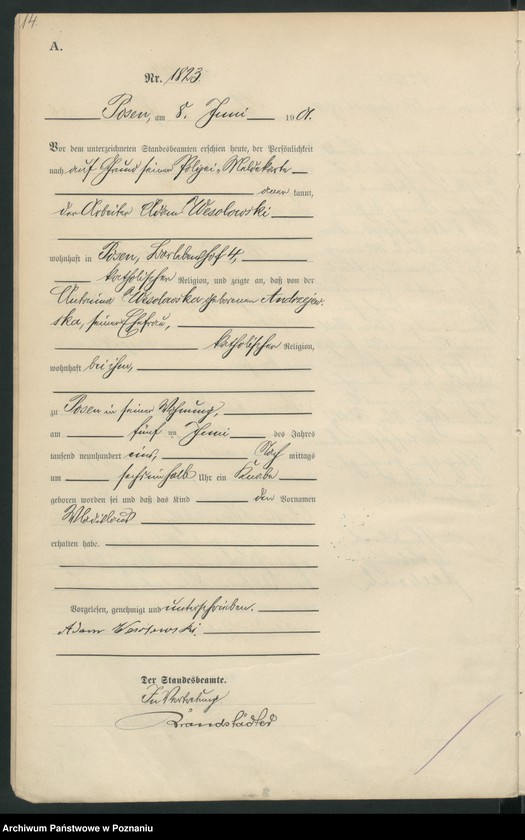 14.
A.
Nr. 1823.
Posen, am 8. Juni 1901.
Vor dem unterzeichneten Standesbeamten erschien heute, der Persönlichkeit
nach auf Grund seiner Polizei-Meldekarte
kannt,
der Arbeiter Adam Wesolowski
wohnhaft in Posen, 4,
katholischer Religion, und zeigte an, daß von der
Antonina Wesolowska geborenen Andrzejew-
ska, seiner Ehefrau,
katholischer Religion,
wohnhaft bei ihm,
zu Posen in seiner Wohnung,
am fünf ten Juni des Jahres
tausend neunhundert eins, Nach mittags
um sechseinhalb Uhr ein Knabe
geboren worden sei und daß das Kind den Vornamen
Wladislaus
erhalten habe.
Vorgelesen, genehmigt und unterschrieben.
Adam Wesolowski.
Der Standesbeamte.
In Vertretung
Brandstädter
Archiwum Państwowe w Poznaniu